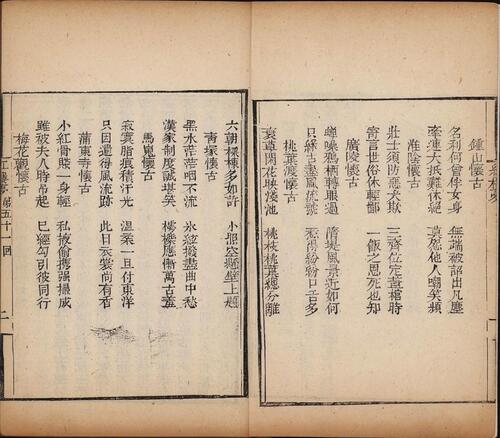 鍾山懷古
名利何曾伴女身　無端被詔出凡塵
牽連大抵難休絕　莫怨他人嘲笑頻
淮陰懷古
壯士須防惡犬欺　三齊位定蓋棺時
寄言世俗休輕鄙　一飯之恩死也知
廣陵懷古
蟬噪鴉栖轉眼過　隋堤風景近如何
只緣占盡風流號　惹得紛紛口舌多
桃葉渡懷古
衰草閒花映淺池　桃枝桃葉總分離
六朝梁棟多如許　小照空懸壁上題
青塚懷古
黑水茫茫咽不流　冰絃撥盡曲中愁
漢家制度誠堪笑　樗櫟應慚萬古羞
馬嵬懷古
寂寞脂痕積汗光　溫柔一旦付東洋
只因遺得風流跡　此日衣裳尚有香
蒲東寺懷古
小紅骨賤一身輕　私掖偷携强撮成
雖被夫人時吊起　已經勾引彼同行
梅花觀懷古
第五十一回
二